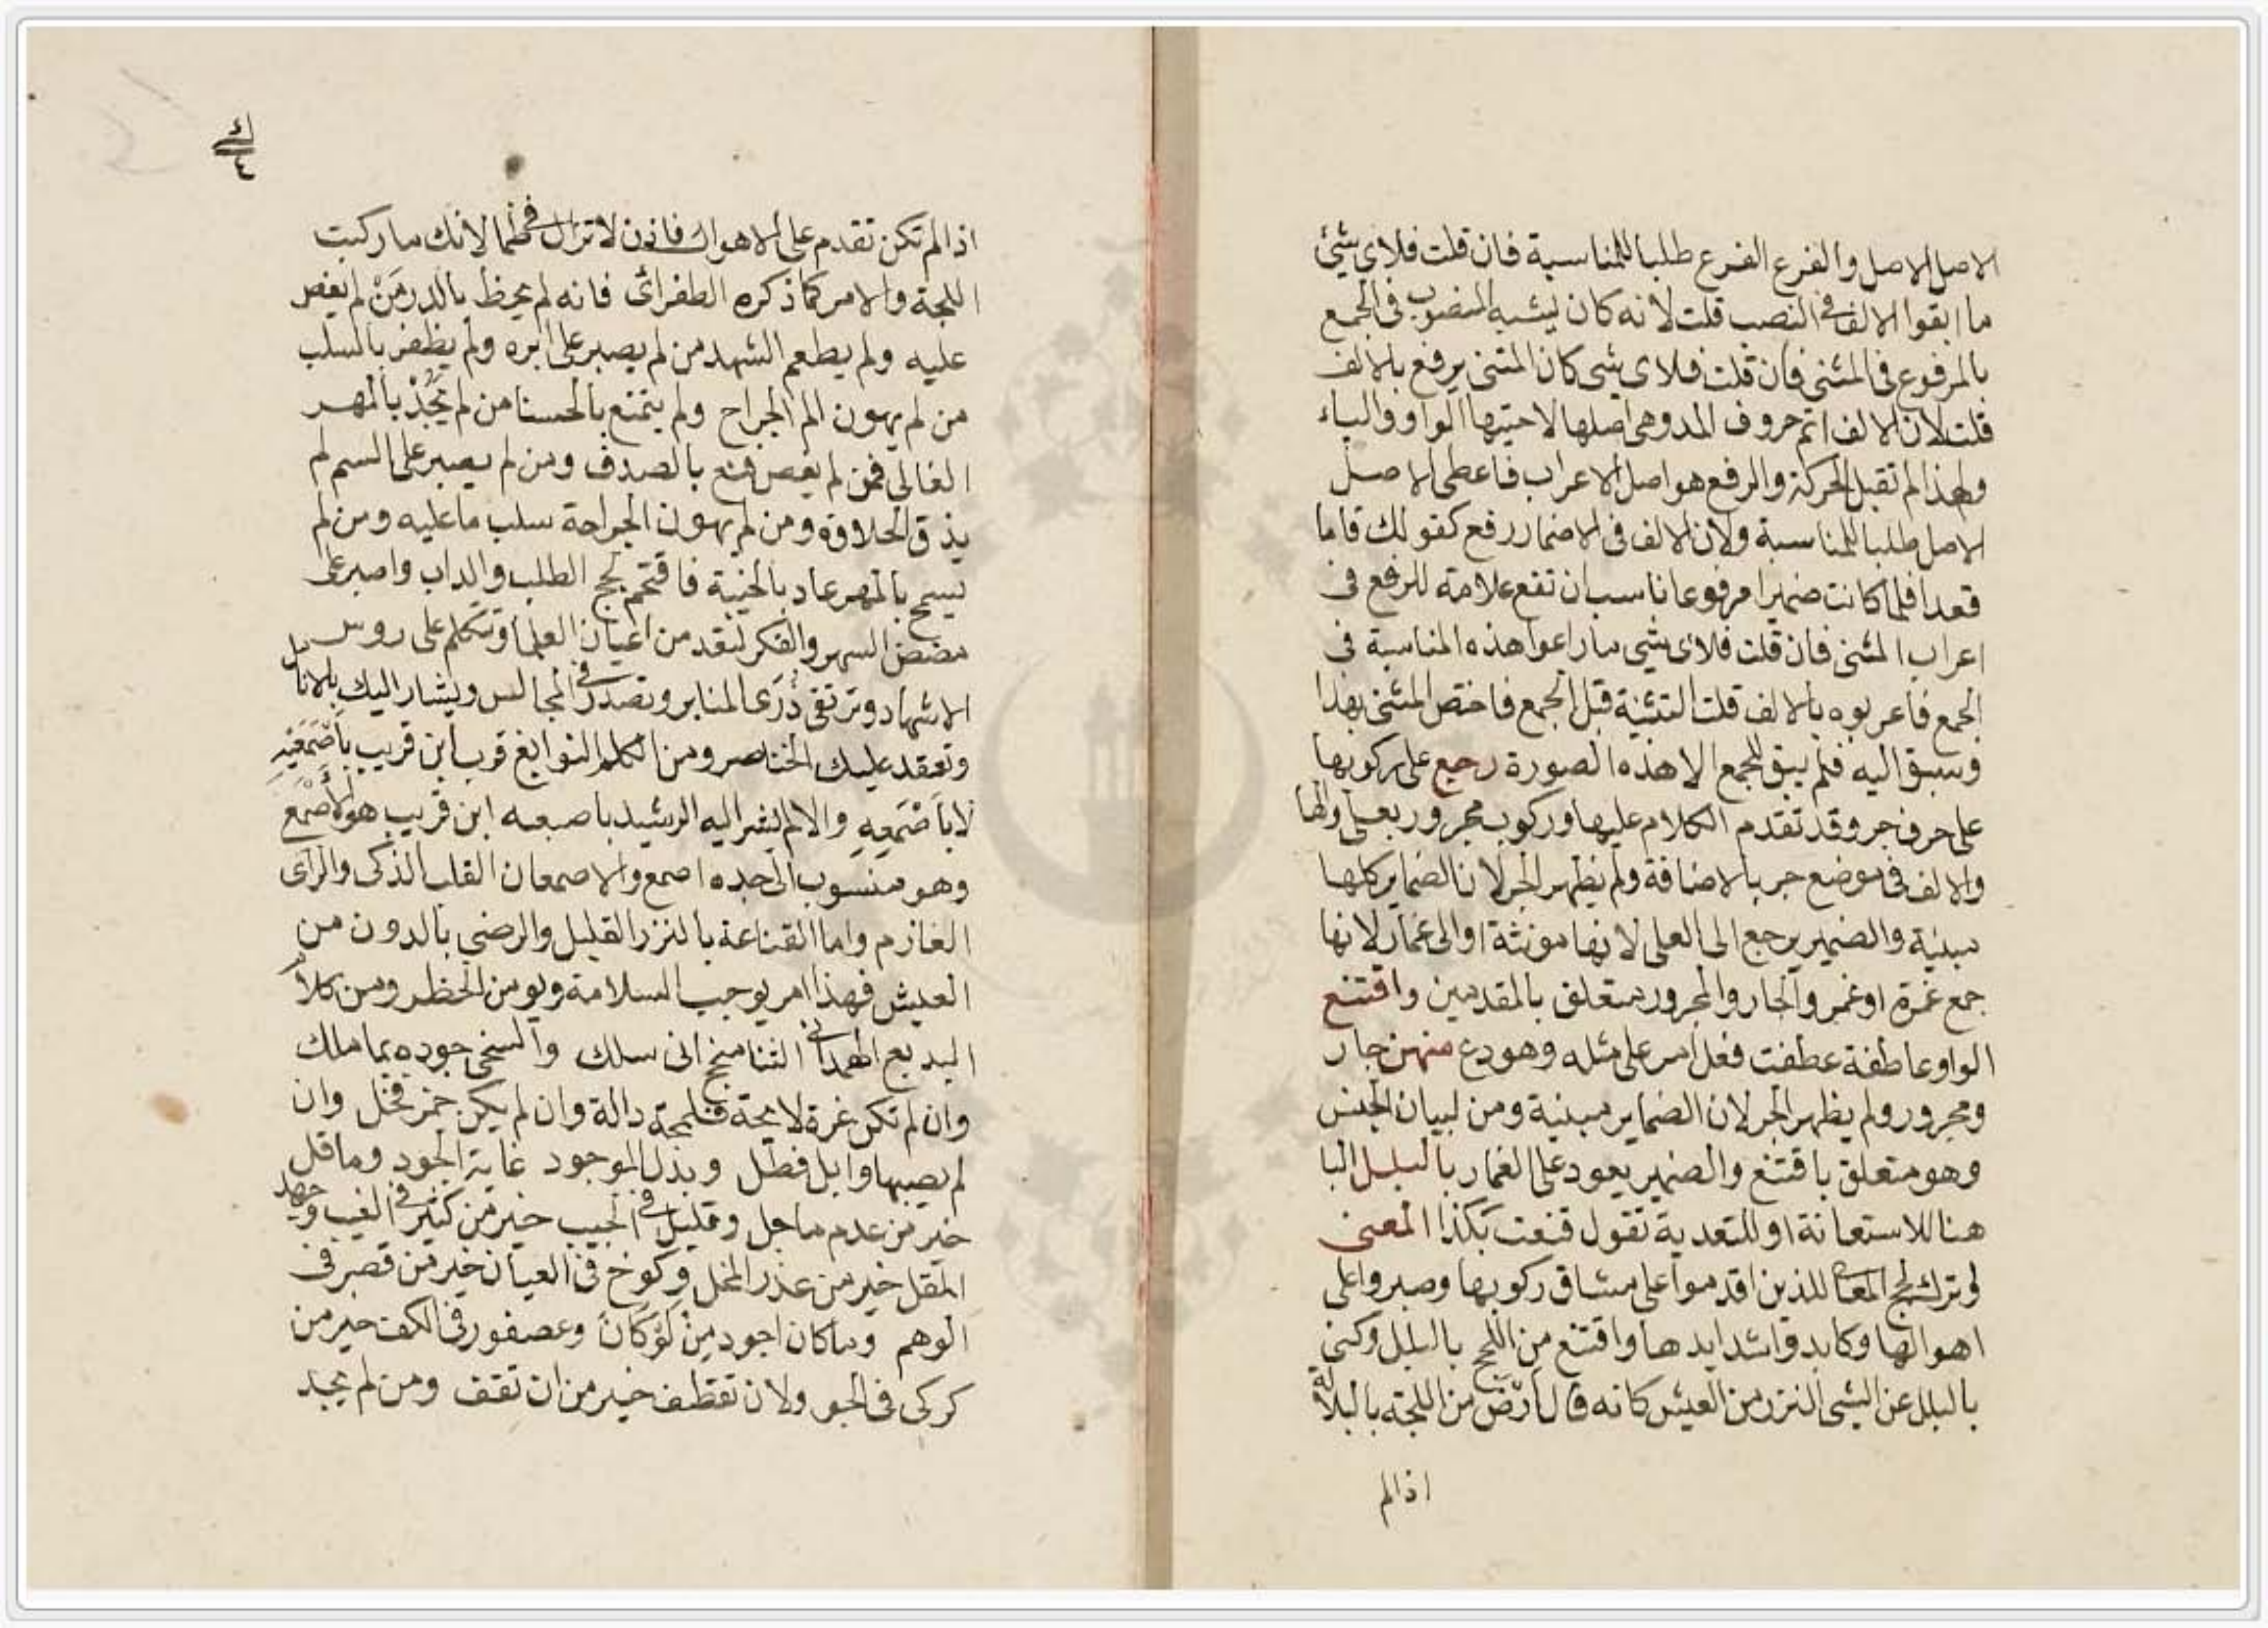 الاصل الاصل والفرع الفرع طلبا للمناسبة فان قلت فلاى شيئ
ما ابقوا الالف فى النصب قلت لانه كان يشبه المنصوب فى الجمع
بالمرفوع فى المثنى فان قلت فلاى شى كان المثنى يرفع بالالف
قلت لان الالف اتم حروف المد وهى اصلها لاختيها الواو والياء
ولهذا لم تقبل الحركة والرفع هو اصل الاعراب فاعطى الاصل
الاصل طلبا للمناسبة ولان الالف فى الاضمار رفع كقولك قاما
قعدا فلما كانت ضميرا مرفوعا ناسب ان تقع علامة للرفع فى
اعراب المثنى فان قلت فلاى شى ما راعوا هذه المناسبة فى
الجمع فاعربوه بالالف قلت التثنية قبل الجمع فاختص المثنى بهذا
وسبق اليه فلم يبق للجمع الا هذه الصورة رجع على ركوبها
على حرف جر وقد تقدم الكلام عليها وركوب مجرور بعلى والها
والالف فى موضع جر بالاضافة ولم يظهر الجر لان الضماير كلها
مبنية والضمير يرجع الى العلى لانها مونثة او الى غمار لانها
جمع غمرة او غمر والجار والمجرور متعلق بالمقدمين واقتنع
الواو عاطفة عطفت فعل امر على مثله وهو دع منهن جار
ومجرور ولم يظهر الجر لان الضماير مبنية ومن لبيان الجنس
وهو متعلق باقتنع والضمير يعود على الغمار بالبلل البا
هنا للاستعانة او للتعدية تقول قنعت بكذا المعنى
وترك لجج المعالى للذين اقدموا على مشاق ركوبها وصبروا على
اهوالها وكابدوا شدايدها واقتنع من اللجج بالبلل وكنى
بالبلل عن الشى النزر من العيش كانه قال ارض من اللجة بالبلالة
اذا لم
٤
اذا لم تكن تقدم على الاهوال فاذن لا تزال فى ظما لانك ما ركبت
اللجة والامر كما ذكره الطغرائى فانه لم يحظ بالدر من لم يغص
عليه ولم يطعم الشهد من لم يصبر على ابره ولم يظفر بالسلب
من لم يهون الم الجراح ولم يتمتع بالحسنا من لم يجد بالمهر
الغالى فمن لم يغص قنع بالصدف ومن لم يصبر على السم لم
يذق الحلاوة ومن لم يهون الجراحة سلب ما عليه ومن لم
يسمح بالمهر عاد بالخيبة فاقتحم لجج الطلب والداب واصبر على
مضض السهر والفكر لتعد من اعيان العلما وتتكلم على روس
الاشهاد وترتقى ذرى المنابر وتصدر فى المجالس ويشار اليك بالانامل
وتعقد عليك الخناصر ومن الكلم النوابغ قرب ابن قريب باصمعيه
لا باصمعه والا لم يشر اليه الرشيد باصبعه ابن قريب هو الاصمع
وهو منسوب الى جده اصمع والاصمعان القلب الذكى والراى
العازم واما القناعة بالنزر القليل والرضى بالدون من
العيش فهذا امر يوجب السلامة ويومن الخطر ومن كلام
البديع الهمدانى الثنا منجح انى سلك والسخى جوده بما ملك
وان لم تكن غرة لايحة فلمحة دالة وان لم يكن خمر فخل وان
لم يصبها وابل فطل وبذل الموجود غاية الجود وما قل
خير من عدم ما جل وقليل فى الجيب خير من كثير فى الغيب وجهد
المقل خير من عذر المخل وكوخ فى العيان خير من قصر فى
الوهم وما كان اجود من لو كان وعصفور فى الكف خير من
كركى فى الجو ولان تقطف خير من ان تقف ومن لم يجد